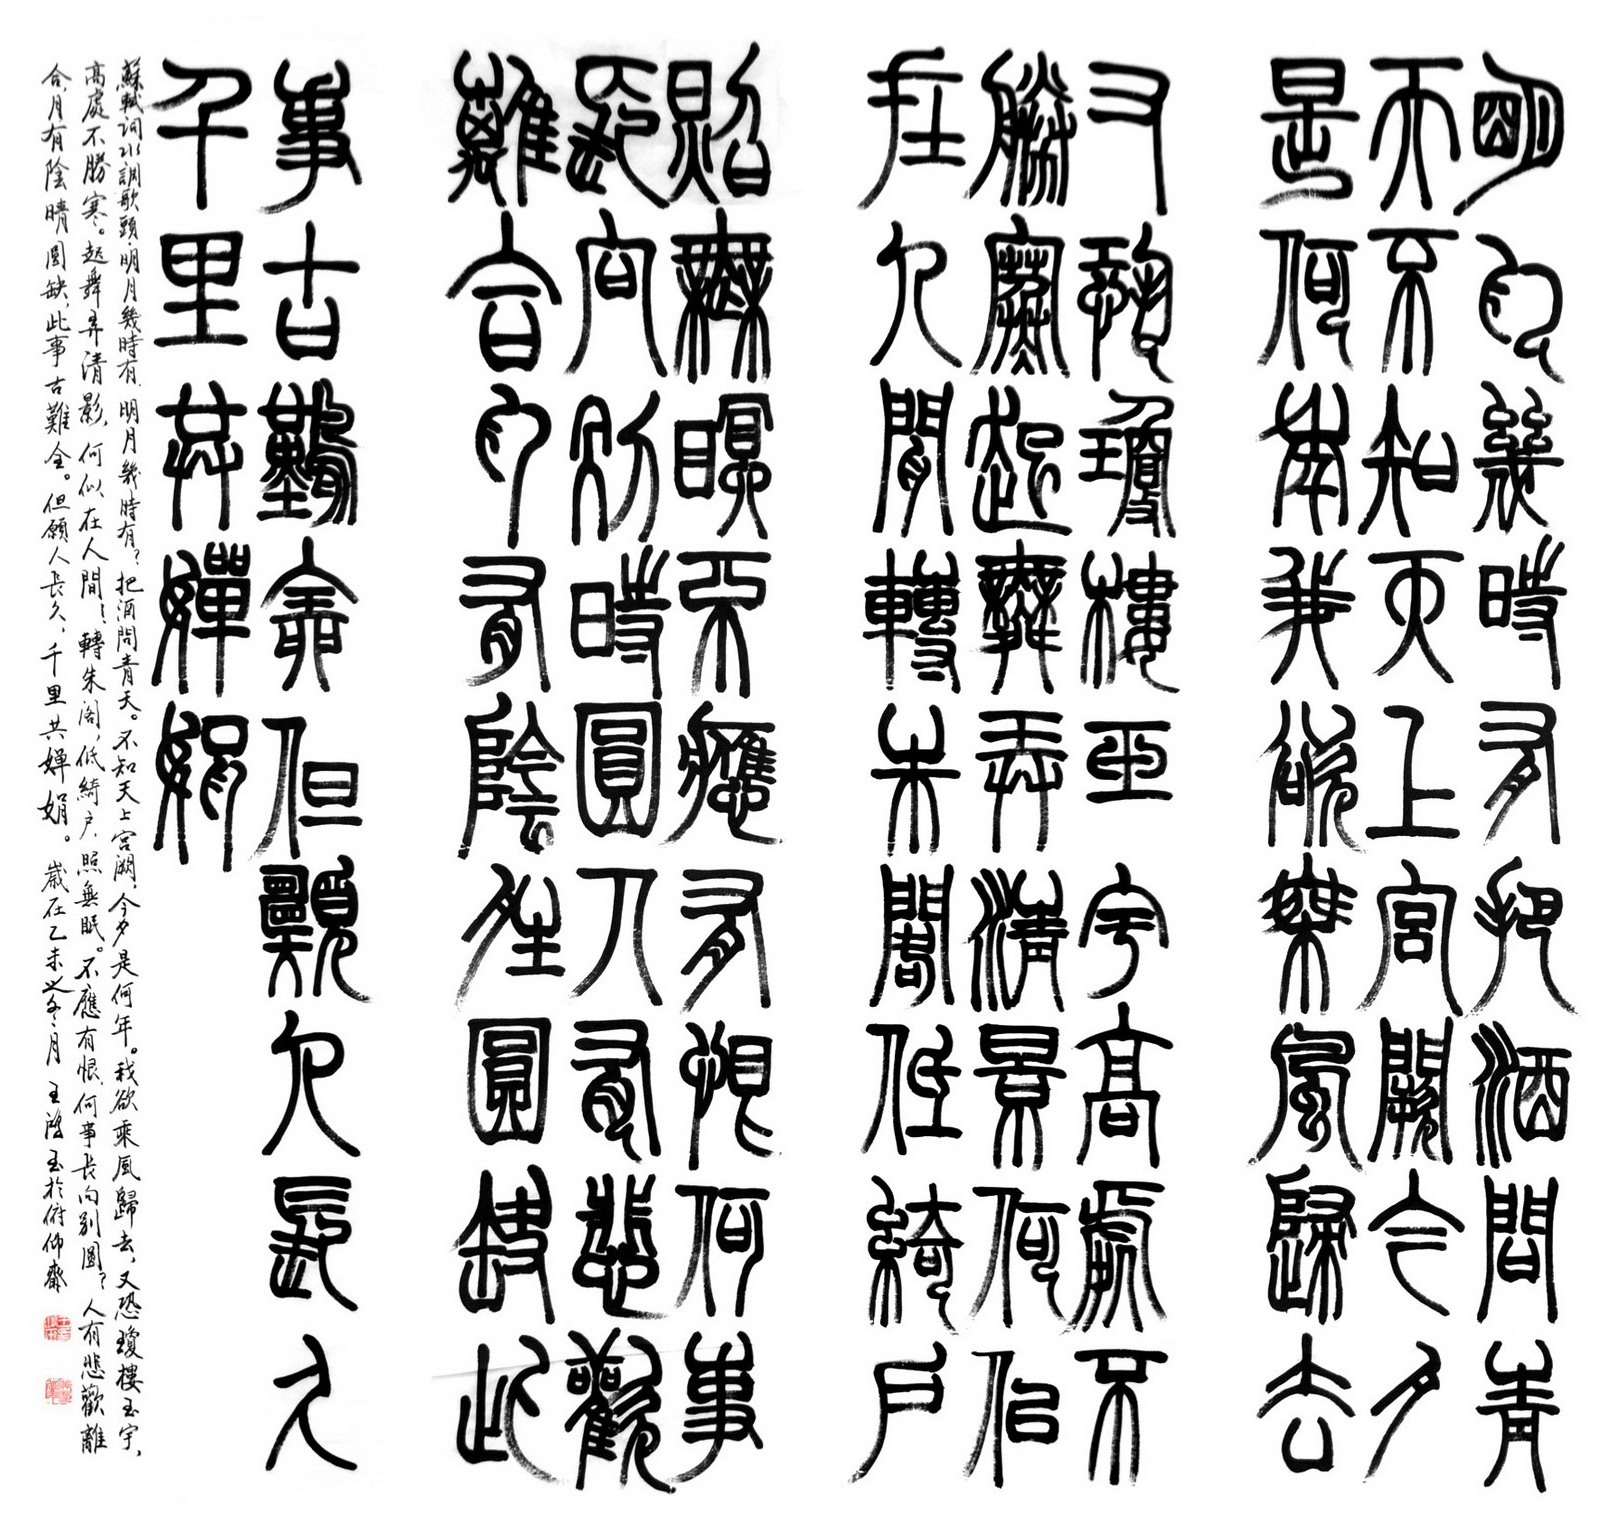 明月幾時有把酒問青
天不知天上宮闕今夕
是何年我欲乘風歸去
又恐瓊樓玉宇高處不
勝寒起舞弄清景何似
在人間轉朱閣低綺戶
照無眠不應有恨何事
長向別時圓人有悲歡
離合月有陰晴圓缺此
事古難全但願人長久
千里共嬋娟
蘇軾詞水調歌頭·明月幾時有 明月幾時有？把酒問青天。不知天上宮闕，今夕是何年。我欲乘風歸去，又恐瓊樓玉宇，
高處不勝寒。起舞弄清影，何似在人間！轉朱閣，低綺戶，照無眠。不應有恨，何事長向別圓？人有悲歡離
合，月有陰晴圓缺，此事古難全。但願人長久，千里共嬋娟。歲在乙未之冬月 王鴻玉於俯仰齋